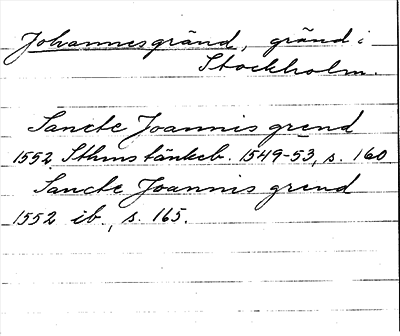 Johannesgränd, gränd i
Stockholm.
Sancte Joannis grend
1552 Sthms tänkeb. 1549-53, s. 160
Sancte Joannis grend
1552 ib., s. 165.